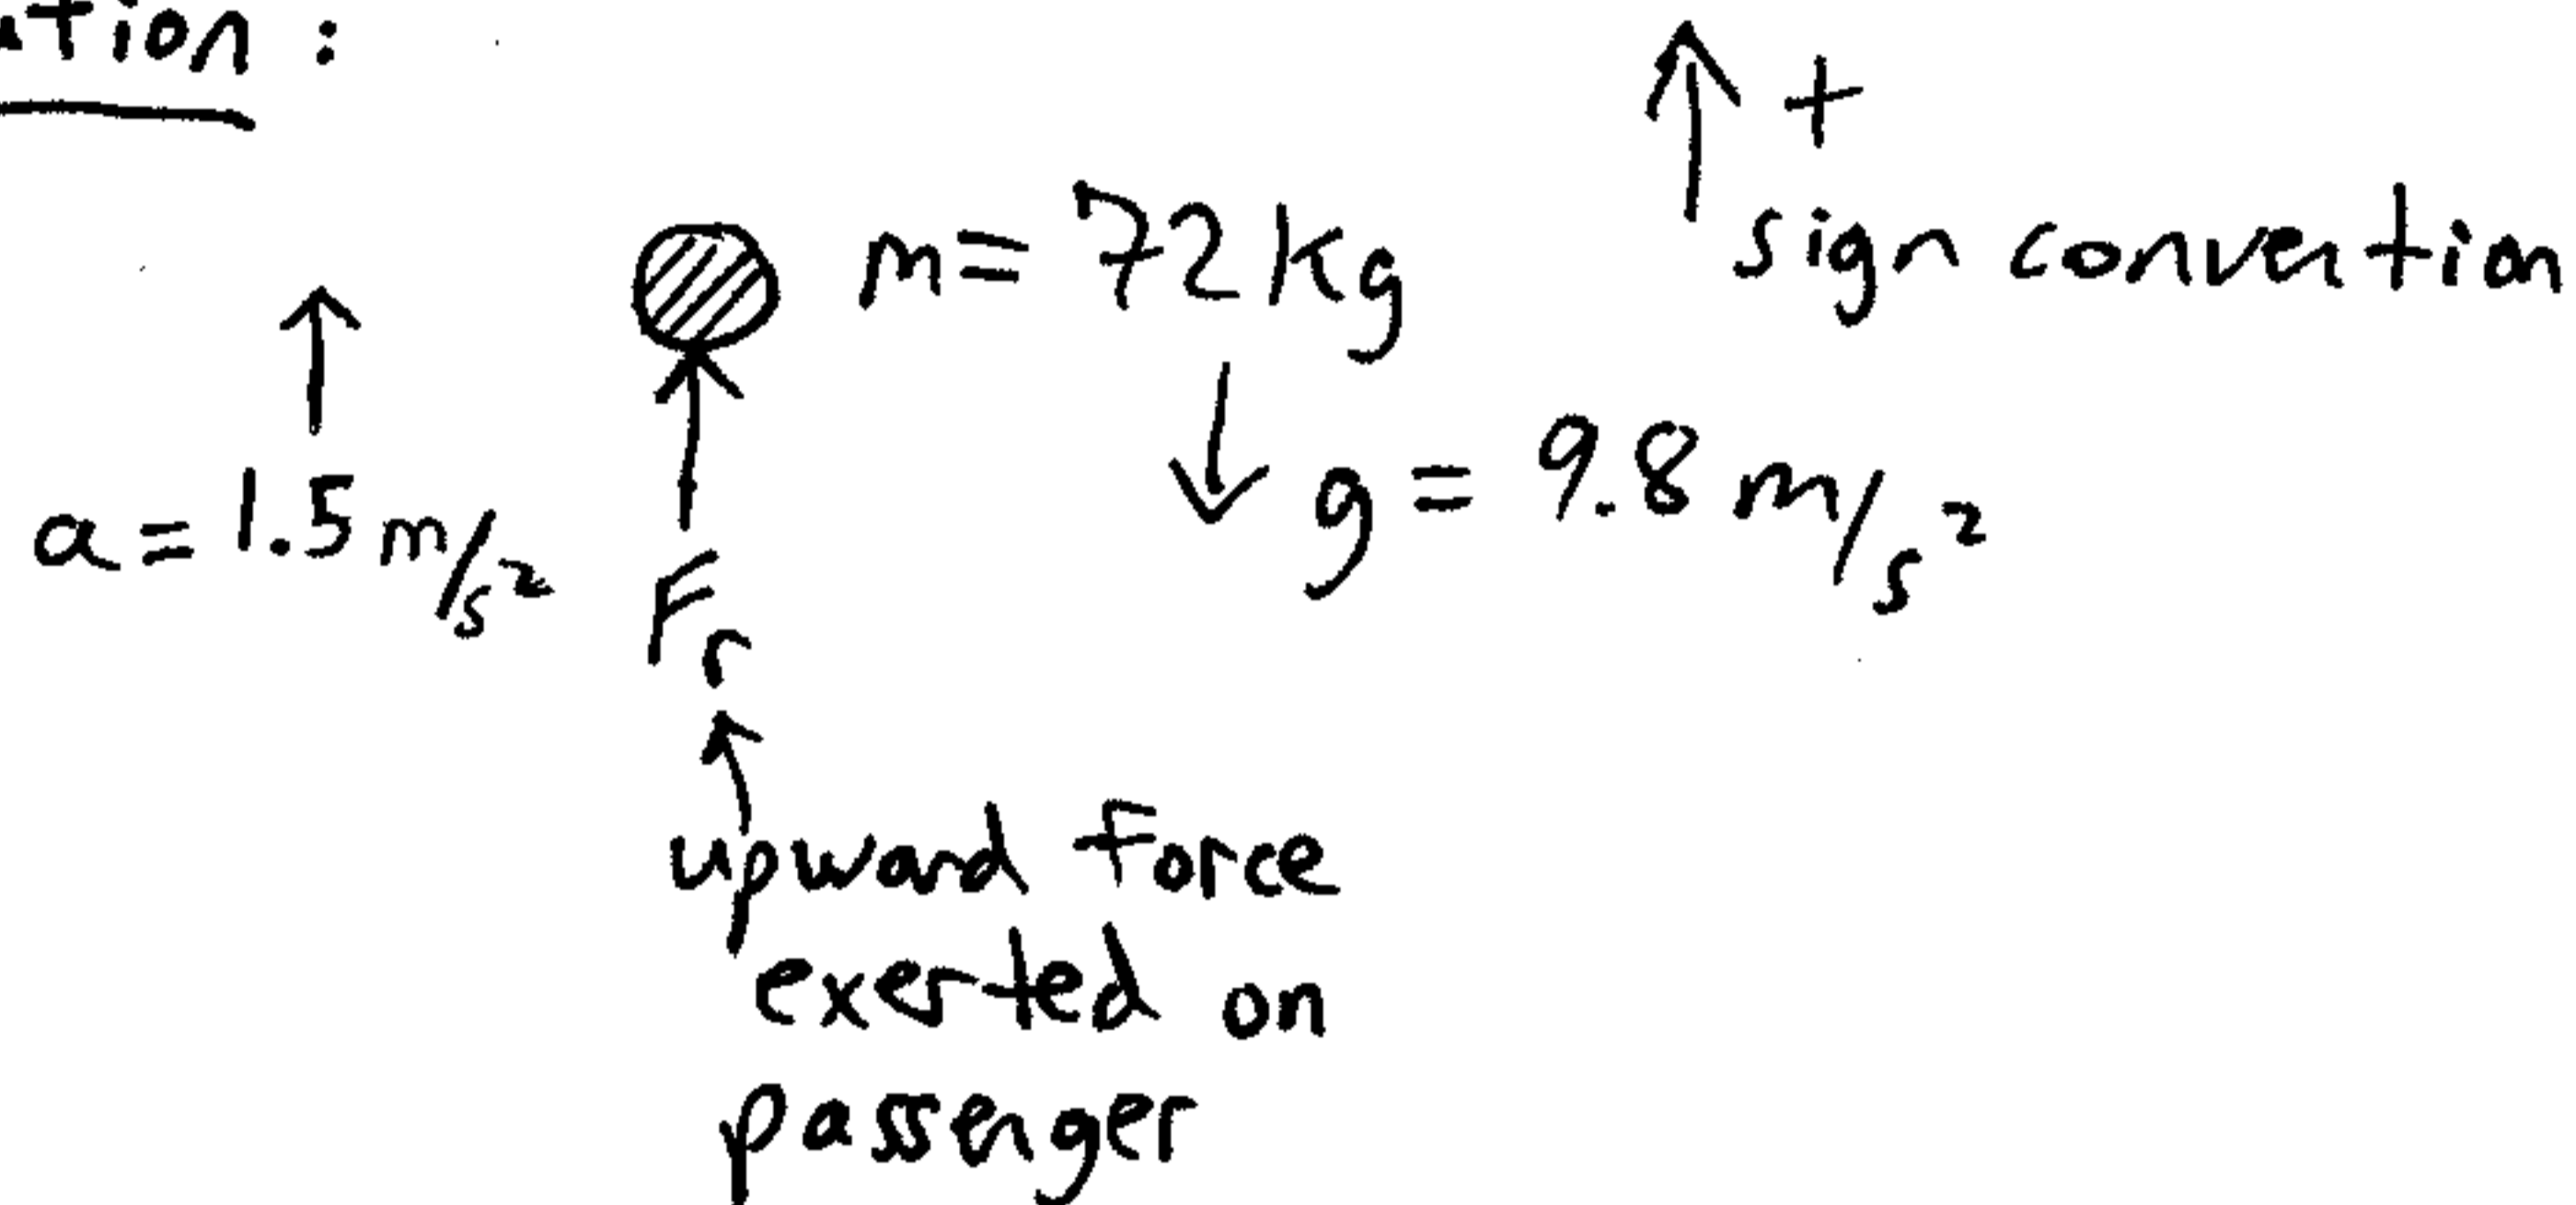 ution :
+
sign convention
m = 72 kg
a = 1.5 m/s²
g = 9.8 m/s²
Fr
upward force
exerted on
passenger